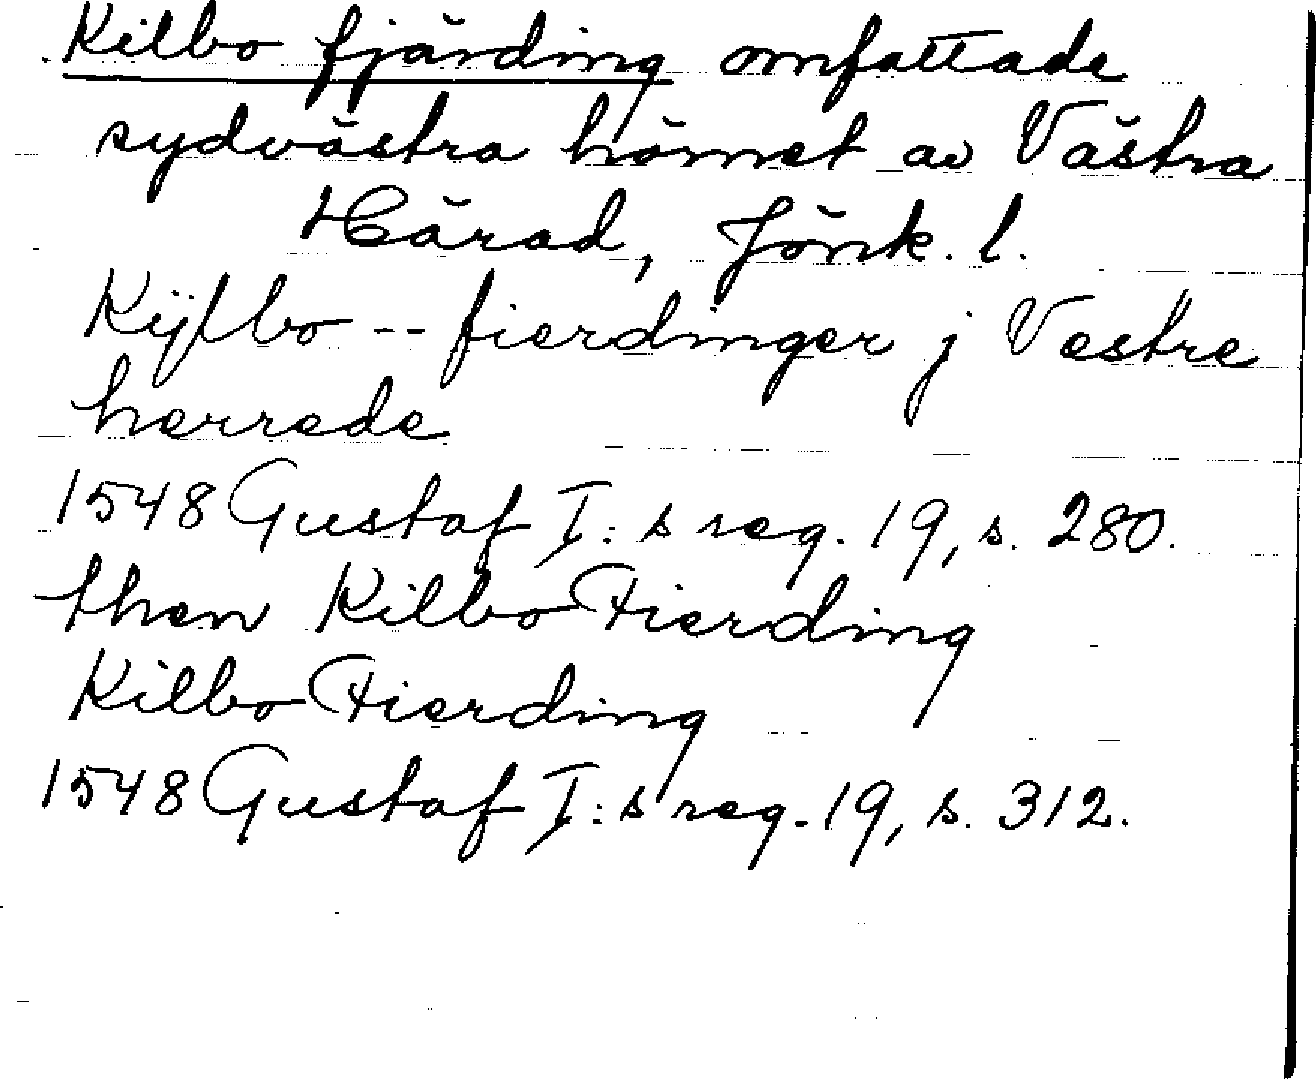 Kilbo fjärding omfattade
sydvästra hörnet av Västra
Härad, Jönk. l.
Kÿlbo -- fierdinger j Vestre
herrede
1548 Gustaf I:s reg. 19, s. 280.
then Kilbo Fierding
Kilbo Fierding
1548 Gustaf I:s reg. 19, s. 312.